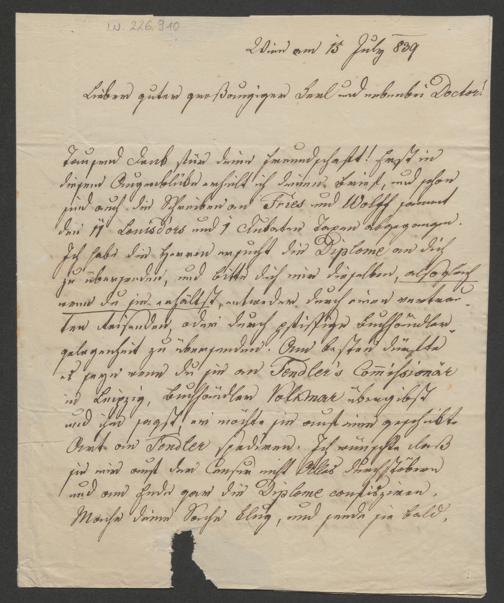 I.N. 226.910
Wien am 15 July 839
Lieber guter großaugiger Kerl und nebenbei Doctor!
Tausend Dank für deine Freundschaft! Erst in
diesem Augenblicke erhielt ich deinen Brief, und schon
sind auch die Schreiben an Fries und Wolff sammt
den 17 Louisdors und 1 Dukaten Taxen abgegangen.
Ich habe die Herren ersucht die Diplome an dich
zu übersenden, und bitte dich mir dieselben, also gleich
wenn du sie erhältst, entweder durch einen vertrau-
ten Reisenden, oder durch pfiffige Buchhändler-
gelegenheit zu übersenden. Am besten dürfte
es seyn wenn du sie an Tendler's Comissionär
in Leipzig, Buchhändler Volkmar übergibst
und ihm sagst, er möchte sie auf eine geschickte
Art an Tendler spediren. Ich wünschte daß
sie mir auf der Censur nicht Alles durchstöbern
und am Ende gar die Diplome confisziren.
Mache deine Sache klug, und sende sie bald,